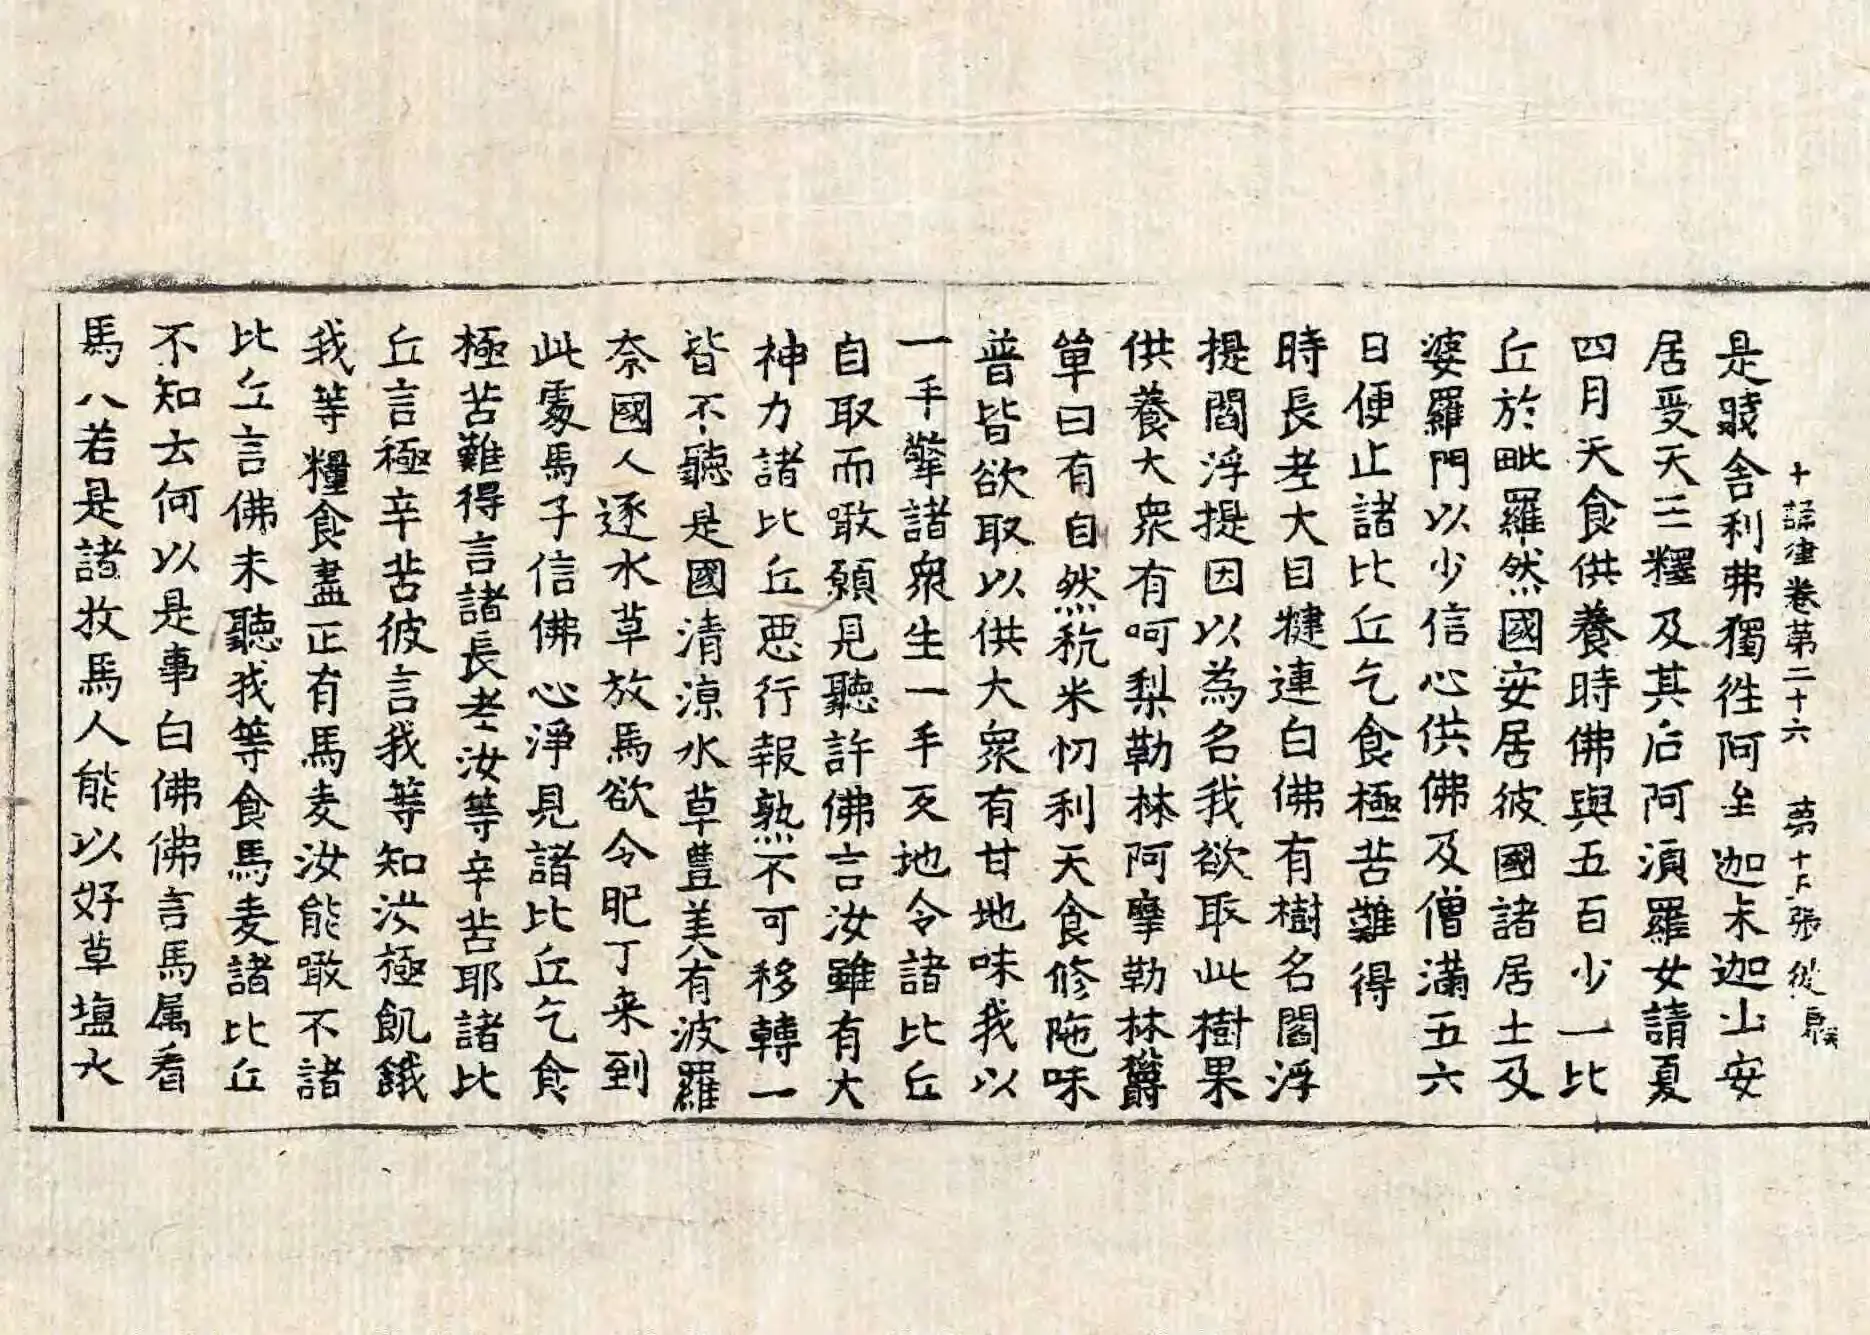 十誦律卷第二十六 第十
是時舍利弗獨往阿牟迦末迦山安
居受天王釋及其后阿湏羅女請夏
四月天食供養時佛與五百少一比
丘於毗羅然國安居彼國諸居士及
婆羅門以少信心供佛及僧滿五六
日便止諸比丘乞食極苦難得
時長老大目揵連白佛有樹名閻浮
提閻浮提因以為名我欲取此樹果
供養大衆有呵梨勒林阿摩勒林欝
單曰有自然秔米忉利天食修陁味
普皆欲取以供大衆有甘地味我以
一手擎諸衆生一手反地令諸比丘
自取而噉願見聽許佛言汝雖有大
神力諸比丘惡行報熟不可移轉一
皆不聽是國清涼水草豊美有波羅
奈國人逐水草放馬欲令肥丁来到
此處馬子信佛心淨見諸比丘乞食
極苦難得言諸長老汝等辛苦耶諸比
丘言極辛苦彼言我等知汝極飢餓
我等糧食盡正有馬麦汝能噉不諸
比丘言佛未聽我等食馬麦諸比丘
不知云何以是事白佛佛言馬属看
馬人若是諸牧馬人能以好草塩水